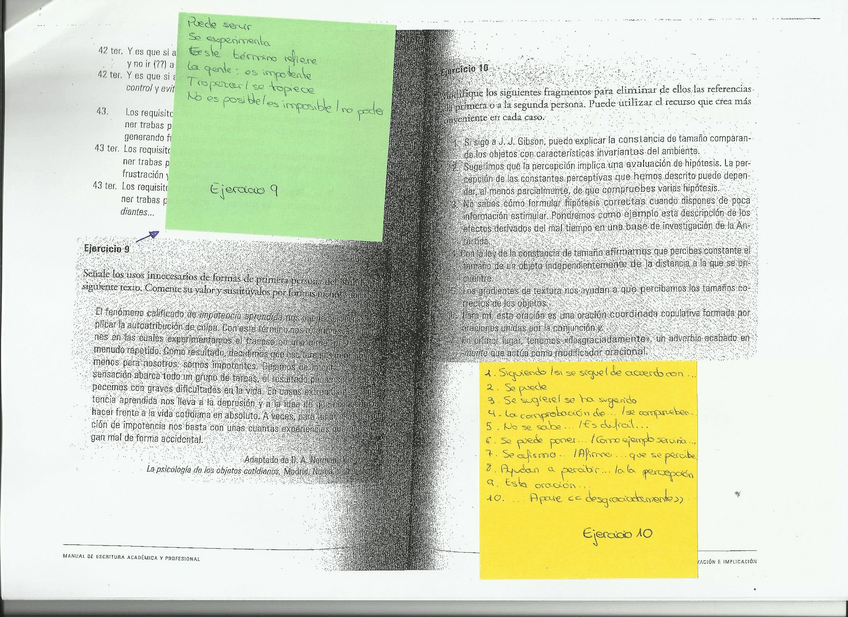 Puede servir
Se experimenta
Este término refiere
La gente: es impotente
Tropezar / se tropiece
No es posible / es imposible / no poder
Ejercicio 9
42 ter. Y es que si a
y no ir (??) a
42 ter. Y es que si
control y evit
43. Los requisito
ner trabas p
generando f
43 ter. Los requisito
ner trabas p
frustración y
43 ter. Los requisito
ner trabas p
diantes...
Ejercicio 9
Señale los usos innecesarios de formas de primera persona del
siguiente texto. Comente su valor y sustitúyalos por formas
El fenómeno calificado de impotencia aprendida nos
plicar la autoatribución de culpa. Con este término nos
nes en las cuales experimentamos el fracaso en una
menudo repetido. Como resultado, decidimos que
menos para nosotros: somos impotentes. Dejamos de
sensación abarca todo un grupo de tareas, el resultado
pecemos con graves dificultades en la vida. En casos
tencia aprendida nos lleva a la depresión y a la idea de
hacer frente a la vida cotidiana en absoluto. A veces, para
ción de impotencia nos basta con unas cuantas experiencias
gan mal de forma accidental.
Adaptado de D. A. Norman
La psicología de los objetos cotidianos, Madrid,
MANUAL DE ESCRITURA ACADÉMICA Y PROFESIONAL
Ejercicio 10
los siguientes fragmentos para eliminar de ellos las referencias
primera o a la segunda persona. Puede utilizar el recurso que crea más
en cada caso.
Si sigo a J. J. Gibson, puedo explicar la constancia de tamaño comparan-
do los objetos con características invariantes del ambiente.
Sugerimos que la percepción implica una evaluación de hipótesis. La per-
cepción de las constantes perceptivas que hemos descrito puede depen-
der, al menos parcialmente, de que compruebes varias hipótesis.
No sabes cómo formular hipótesis correctas cuando dispones de poca
información estimular. Pondremos como ejemplo esta descripción de los
efectos derivados del mal tiempo en una base de investigación de la An-
tártida.
Con la ley de la constancia de tamaño afirmamos que percibes constante el
tamaño de un objeto independientemente de la distancia a la que se en-
cuentre.
Los gradientes de textura nos ayudan a que percibamos los tamaños co-
rrectos de los objetos.
Para mí, esta oración es una oración coordinada copulativa formada por
oraciones unidas por la conjunción y.
En primer lugar, tenemos «desgraciadamente», un adverbio acabado en
-mente que actúa como modificador oracional.
1. Siguiendo / si se sigue / de acuerdo con ...
2. Se puede
3. Se sugiere / se ha sugerido
4. La comprobación de ... / se comprueben
5. No se sabe ... / Es difícil ...
6. Se puede poner ... / Como ejemplo
7. Se afirma ... / Afirma ... que se percibe
8. Ayudan a percibir ... / a la percepción
9. Esta oración ...
10. ... Aparece <<desgraciadamente>>
Ejercicio 10
ACIÓN E IMPLICACIÓN